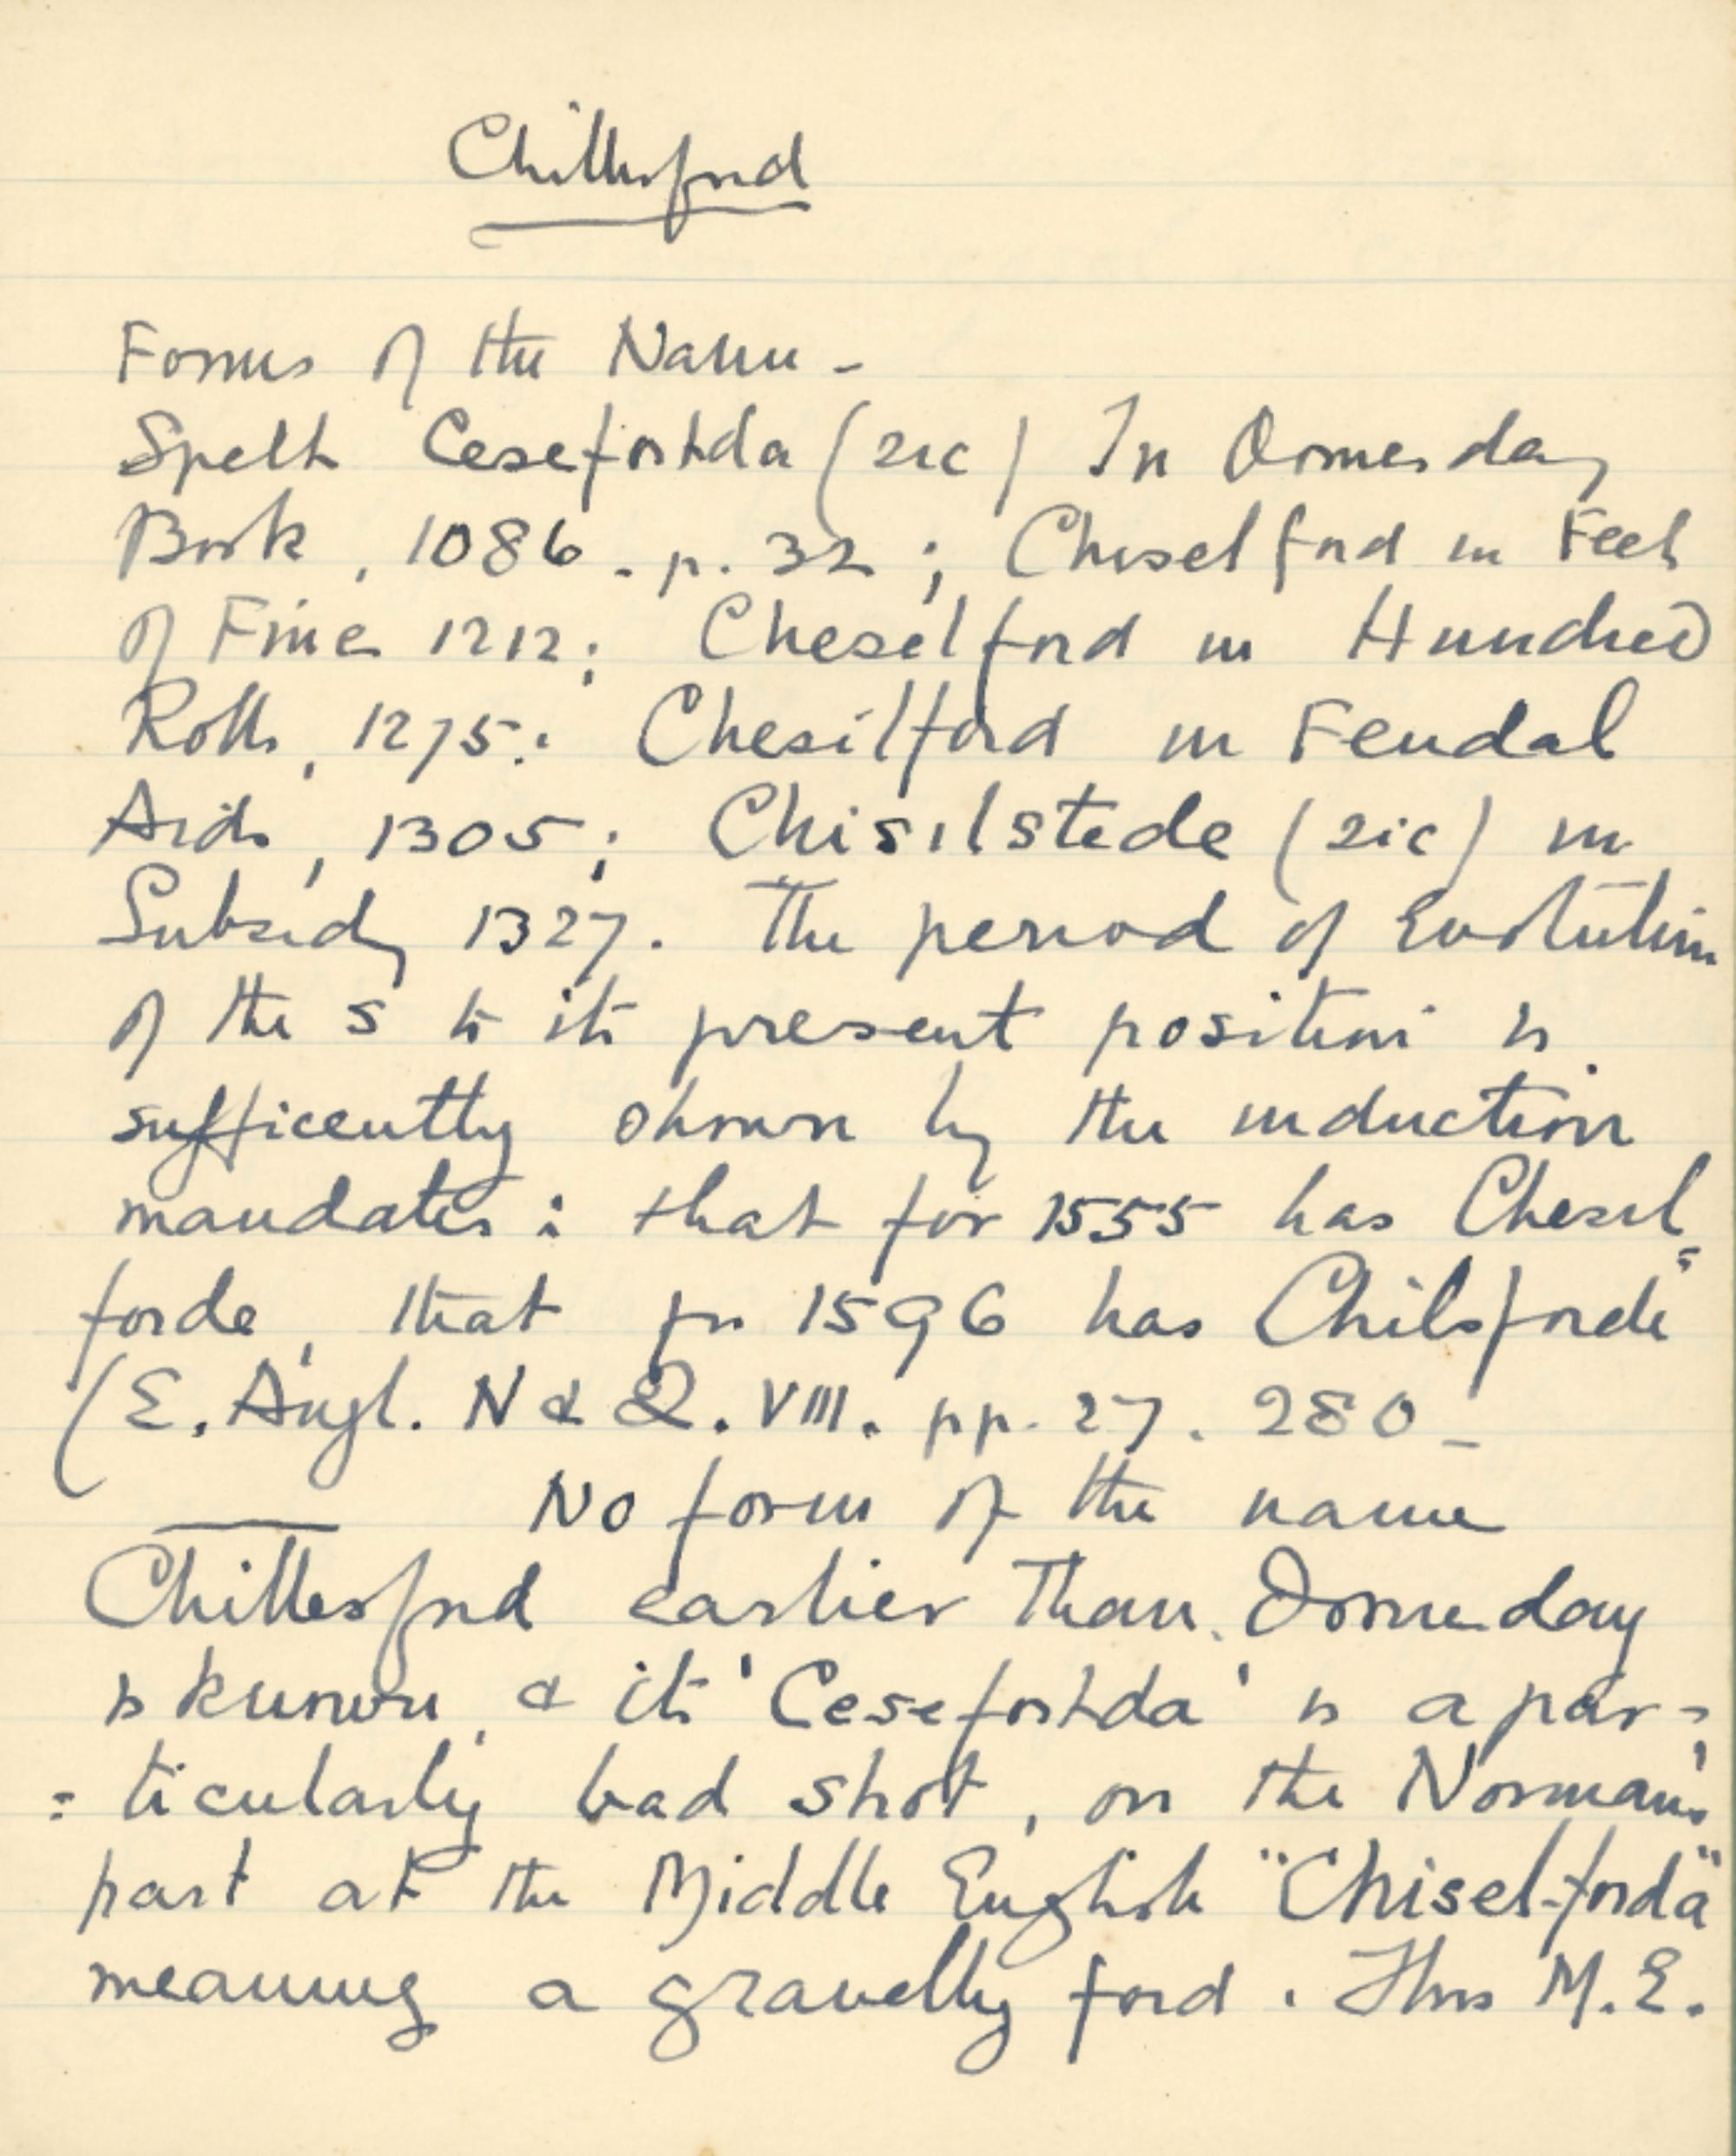 Chillesford
Forms of the Name -
Spelt Cesefortda (sic) In Domesday
Book, 1086 - p. 32; Cheselford in Feet
of Fine 1212; Cheselford in Hundred
Rolls, 1275; Chesilford in Feudal
Aids, 1305; Chisilstede (sic) in
Subsidy 1327. The period of Evolution
of the s to its present position is
sufficently shown by the induction
mandates: that for 1555 has Chesil=
forde, that for 1596 has Chilsforde
(E. Angl. N & Q. VIII. pp. 27. 280_
No form of the name
Chillesford earlier Than Domesday
is known, & its 'Cesefortda' is a par=
=ticularly bad shot, on the Norman's
part at the Middle English "Chisel-forda"
meaning a gravelly ford. This M.E.